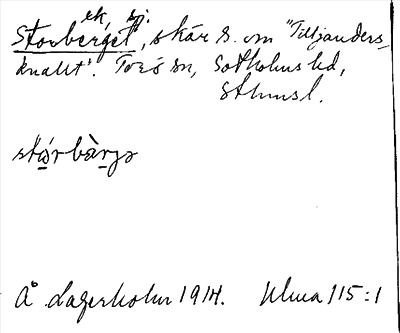 ek, sj:
Storberget, skär S. om "Tilljanders
knallt". Torö sn, Sotholms hd,
Sthmsl.
stórbàrjə
Å. Lagerholm 1914. Ulma 115:1